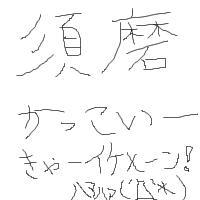 須磨
かっこいー
きゃーイケメーン!
ハアハア(´Д`*)